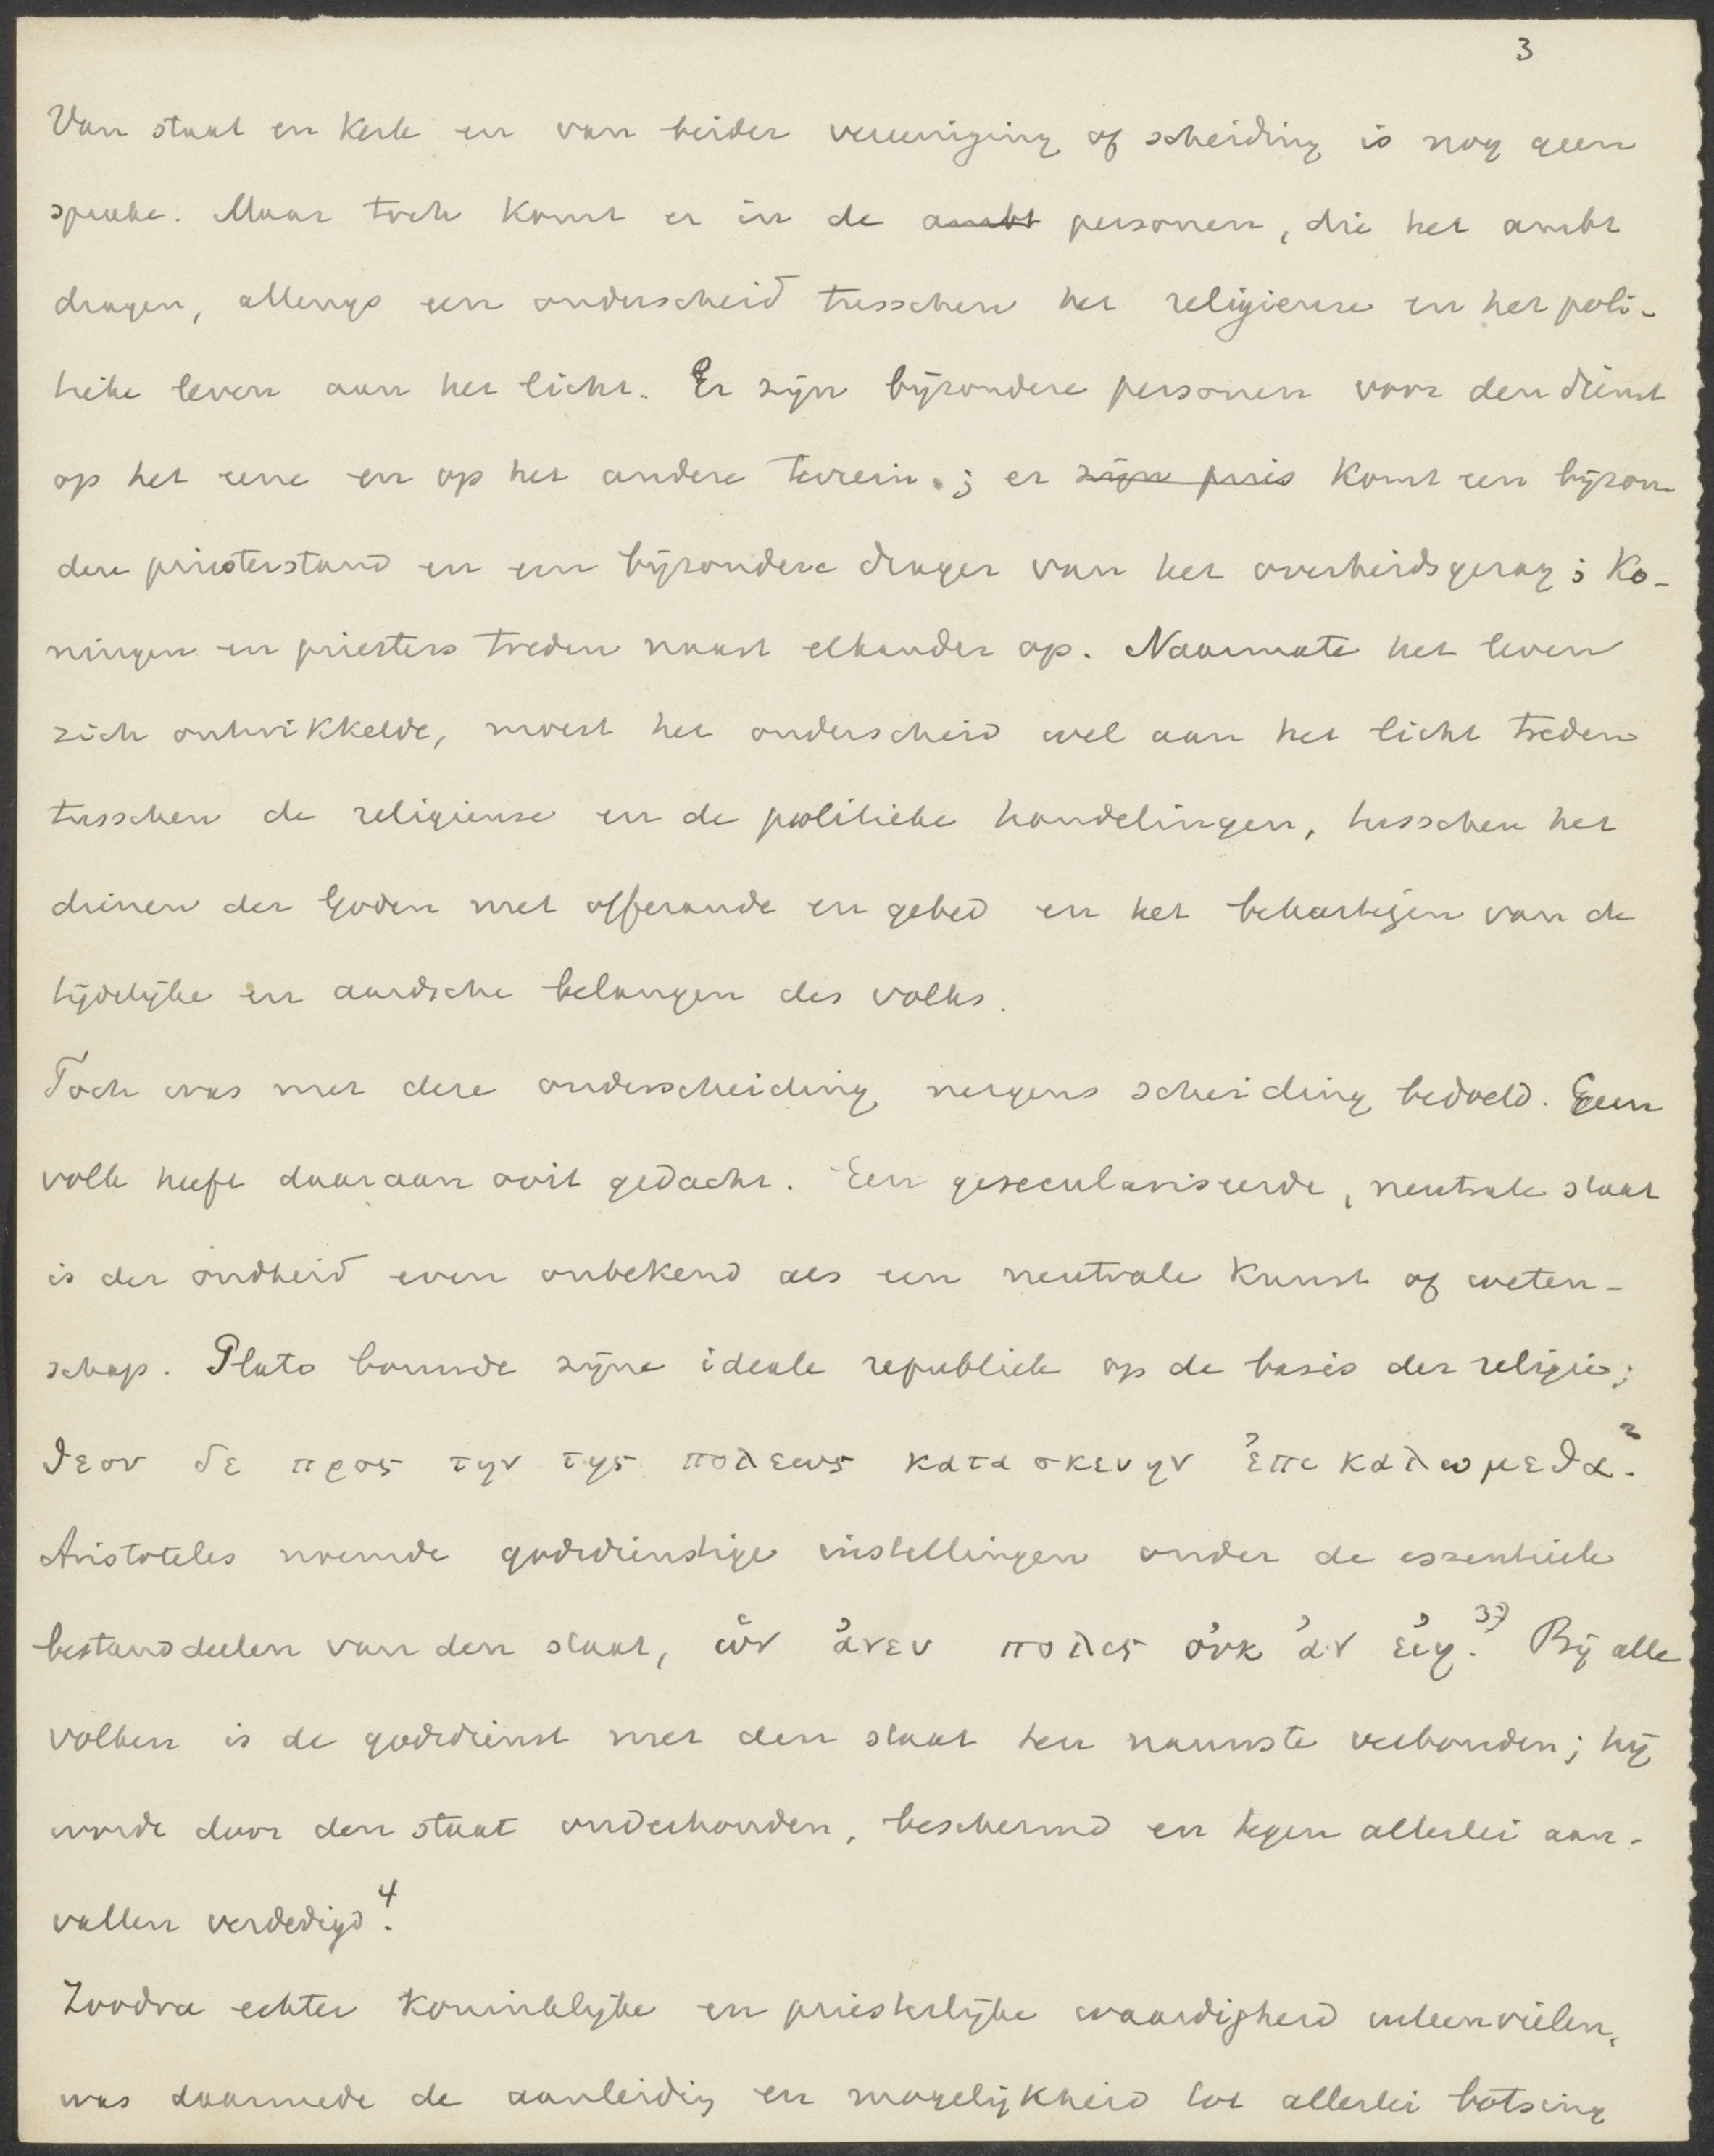 3
Van staat en kerk en van beider vereeniging of scheiding is nog geen
sprake. Maar toch komt er in de ambt personen, die het ambt
dragen, allengs een onderscheid tusschen het religieuse en het poli-
tieke leven aan het licht. Er zijn bijzondere personen voor den dienst
op het eene en op het andere terrein.; er zijn pries komt een bijzon-
dere priesterstand en een bijzondere drager van het overheidsgezag; Ko-
ningen en priesters treden naast elkander op. Naarmate het leven
zich ontwikkelde, moest het onderscheid wel aan het licht treden
tusschen de religieuse en de politieke handelingen, tusschen het
dienen der Goden met offerande en gebed en het behartigen van de
tijdelijke en aardsche belangen des volks.
Toch was met deze onderscheiding nergens scheiding bedoeld. Geen
volk heeft daaraan ooit gedacht. Een geseculariseerde, neutrale staat
is der oudheid even onbekend als een neutrale kunst of weten-
schap. Plato bouwde zijne ideale republiek op de basis der religie;
θεον δε προς την της πολεως κατασκευην ἐπικαλωμεθα.²
Aristoteles noemde godsdienstige instellingen onder de essentieele
bestanddeelen van den staat, ὡν ἀνευ πολις οὐκ ἀν εἰη.³⁾ Bij alle
volken is de godsdienst met den staat ten nauwste verbonden; hij
wordt door den staat onderhouden, beschermd en tegen allerlei aan-
vallen verdedigd.⁴
Zoodra echter koninklijke en priesterlijke waardigheid uiteenvielen,
was daarmede de aanleidig en mogelijkheid tot allerlei botsing